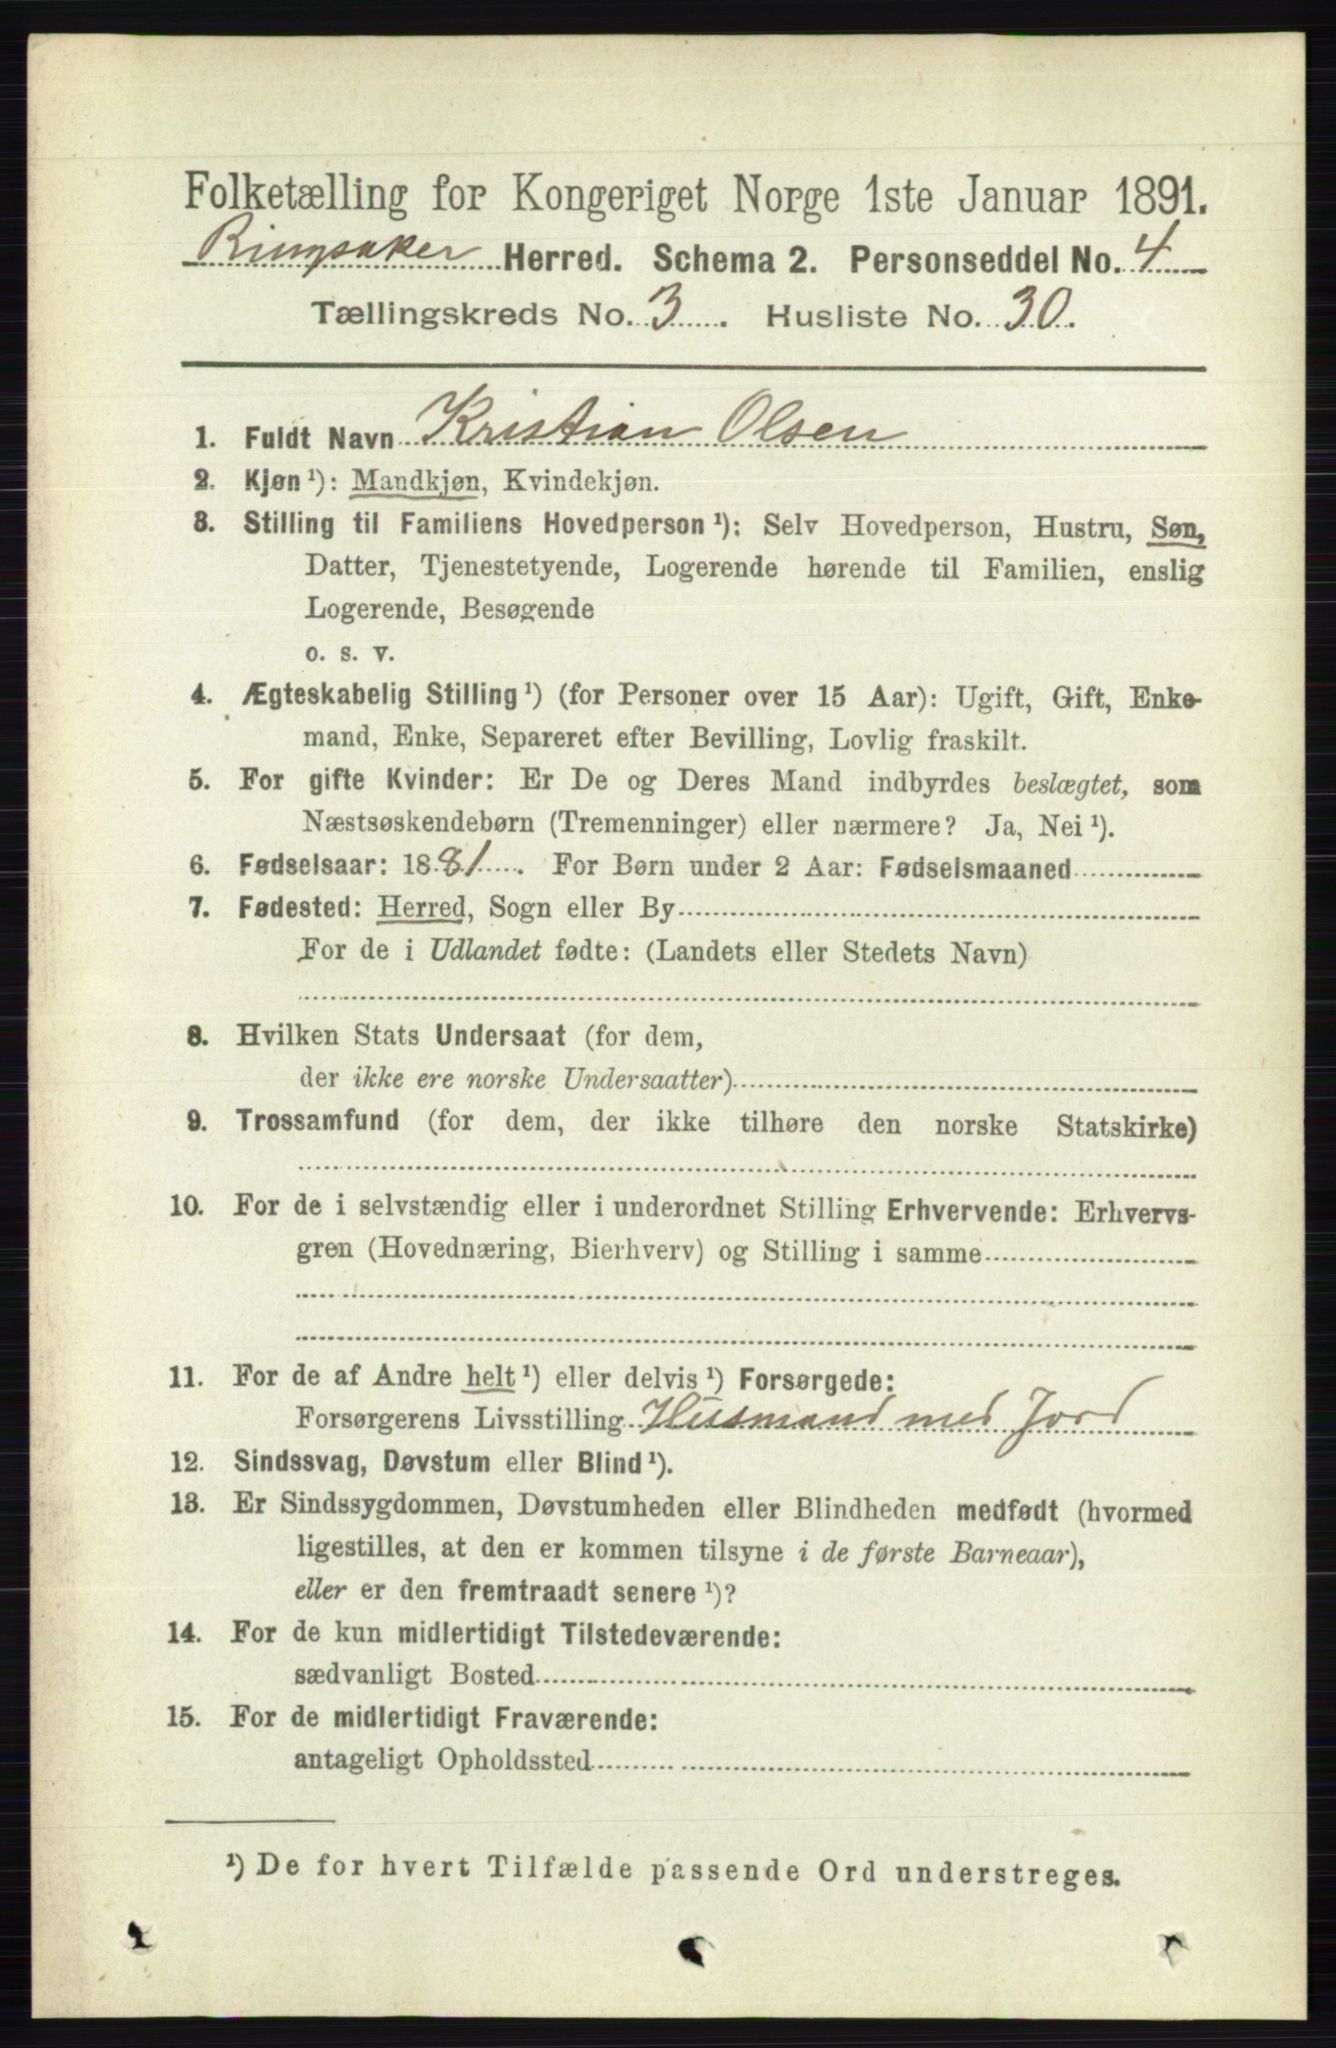 Folketælling for Kongeriget Norge 1ste Januar 1891.
Ringsaker Herred. Schema 2. Personseddel No. 4
Tællingskreds No. 3. Husliste No. 30.
1. Fuldt Navn Kristian Olsen
2. Kjøn ¹): Mandkjøn, Kvindekjøn.
3. Stilling til Familiens Hovedperson ¹): Selv Hovedperson, Hustru, Søn,
Datter, Tjenestetyende, Logerende hørende til Familien, enslig
Logerende, Besøgende
o. s. v.
4. Ægteskabelig Stilling ¹) (for Personer over 15 Aar): Ugift, Gift, Enke-
mand, Enke, Separeret efter Bevilling, Lovlig fraskilt.
5. For gifte Kvinder: Er De og Deres Mand indbyrdes beslægtet, som
Næstsøskendebørn (Tremenninger) eller nærmere? Ja, Nei ¹).
6. Fødselsaar: 1881. For Børn under 2 Aar: Fødselsmaaned
7. Fødested: Herred, Sogn eller By
For de i Udlandet fødte: (Landets eller Stedets Navn)
8. Hvilken Stats Undersaat (for dem,
der ikke ere norske Undersaatter)
9. Trossamfund (for dem, der ikke tilhøre den norske Statskirke)
10. For de i selvstændig eller i underordnet Stilling Erhvervende: Erhvervs-
gren (Hovednæring, Bierhverv) og Stilling i samme
11. For de af Andre helt ¹) eller delvis ¹) Forsørgede:
Forsørgerens Livsstilling Husmand med Jord
12. Sindssvag, Døvstum eller Blind ¹).
13. Er Sindssygdommen, Døvstumheden eller Blindheden medfødt (hvormed
ligestilles, at den er kommen tilsyne i de første Barneaar),
eller er den fremtraadt senere ¹)?
14. For de kun midlertidigt Tilstedeværende:
sædvanligt Bosted
15. For de midlertidigt Fraværende:
antageligt Opholdssted
¹) De for hvert Tilfælde passende Ord understreges.